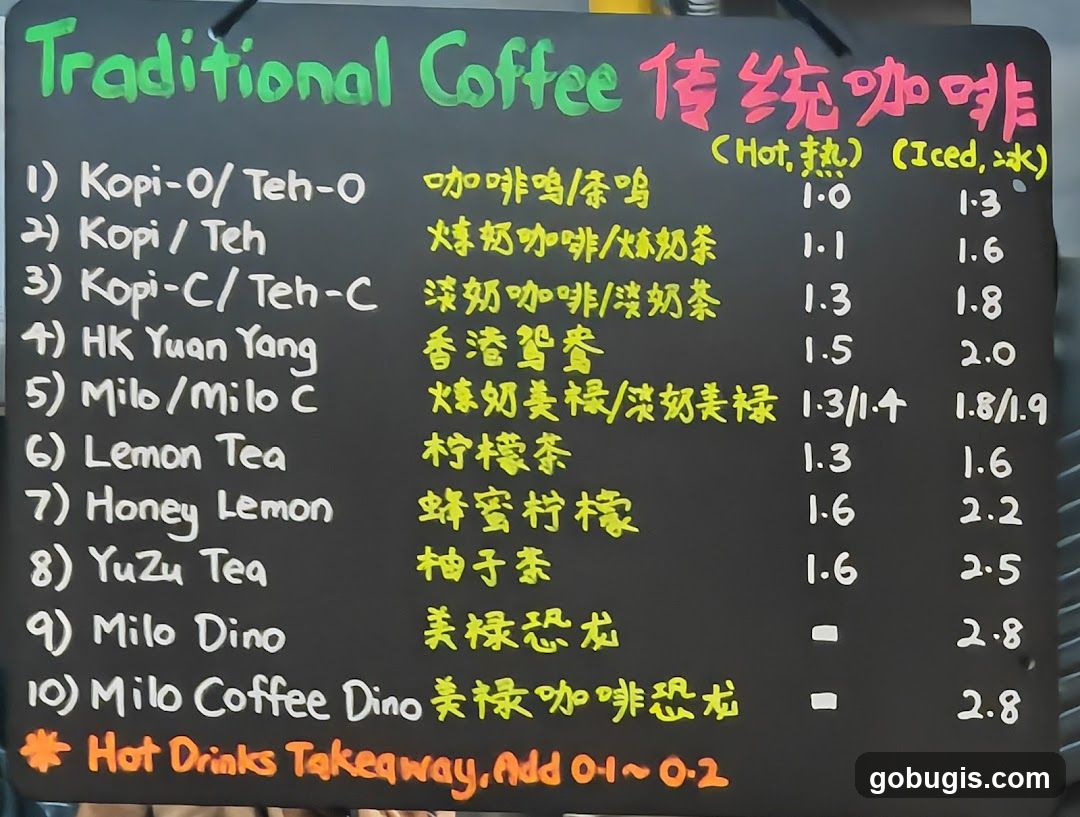 Traditional Coffee 传统咖啡
(Hot,热) (Iced,冰)
1) Kopi-O/Teh-O 咖啡呜/茶呜 1.0 1.3
2) Kopi/Teh 炼奶咖啡/炼奶茶 1.1 1.6
3) Kopi-C/Teh-C 淡奶咖啡/淡奶茶 1.3 1.8
4) HK Yuan Yang 香港鸳鸯 1.5 2.0
5) Milo/Milo C 炼奶美禄/淡奶美禄 1.3/1.4 1.8/1.9
6) Lemon Tea 柠檬茶 1.3 1.6
7) Honey Lemon 蜂蜜柠檬 1.6 2.2
8) YuZu Tea 柚子茶 1.6 2.5
9) Milo Dino 美禄恐龙 - 2.8
10) Milo Coffee Dino 美禄咖啡恐龙 - 2.8
* Hot Drinks Takeaway, Add 0.1~0.2
gobugis.com